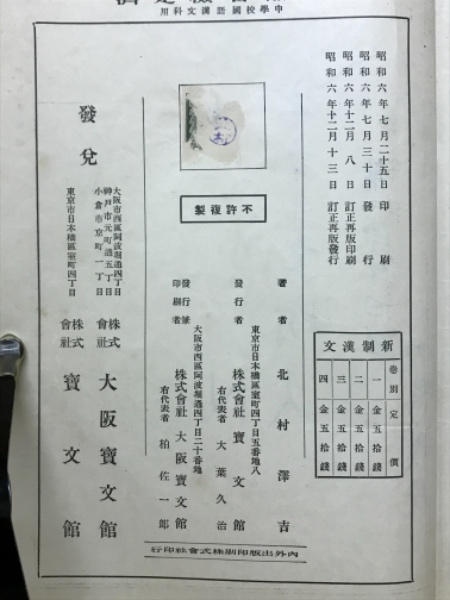 中學校國語漢文科用
昭和六年七月二十五日印刷
昭和六年七月三十日發行
昭和六年十二月八日訂正再版印刷
昭和六年十二月十三日訂正再版發行
新制漢文
卷別 定價
一 金五拾錢
二 金五拾錢
三 金五拾錢
四 金五拾錢
不許複製
著者 北村澤吉
東京市日本橋區室町四丁目五番地八
發行者 株式會社 寶文館
右代表者 大葉久治
大阪市西區阿波堀通四丁目二十番地
發行兼印刷者 株式會社 大阪寶文館
右代表者 柏佐一郎
發兌
大阪市西區阿波堀通四丁目
神戸市元町通五丁目
小倉市京町一丁目
株式會社 大阪寶文館
東京市日本橋區室町四丁目
株式會社 寶文館
內外出版印刷株式會社印行